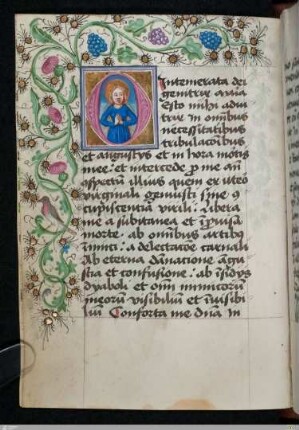 Intemerata dei
genitrix maria
esto mihi adiu
trix in omnibus
necessitatibus
tribulacoibus
et angustys et in hora motis
mee: et intercede p me an
illius quem ex utero
virginali genuisti sine
cupiscentia virili: libera
me a subitanea et ipuisa
morte. ab omibus artibus
inimici: a delectacoe carnali
Ab eterna dānatione
sta et confusione: ab insidys
dyaboli et oim inimicorum
meorum visibilium et invisibi
lium Conforta me dūa in